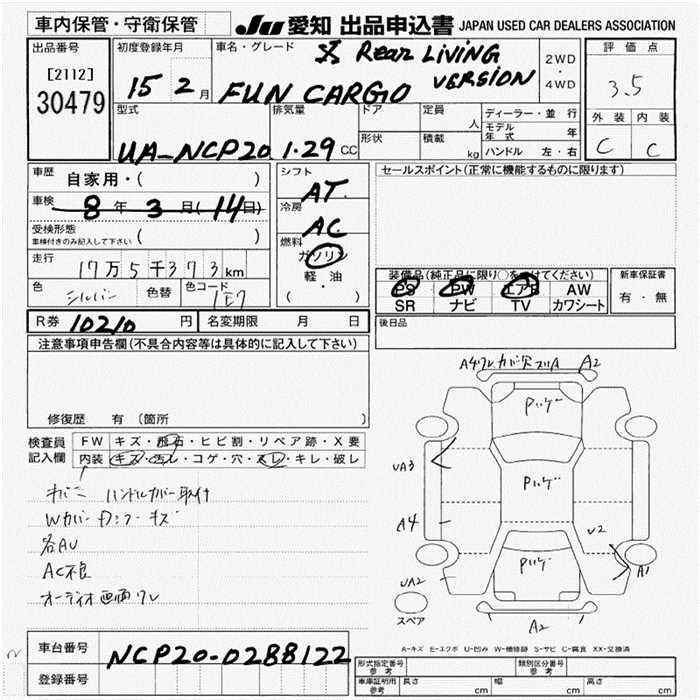 車内保管・守衛保管
JU 愛知 出品申込書 JAPAN USED CAR DEALERS ASSOCIATION
出品番号
[2112]
30479
初度登録年月
15 2月
車名・グレード
Rear LIVING
VERSION
FUN CARGO
2WD
・
4WD
評価点
3.5
外装 内装
C C
型式
UA-NCP20
排気量
1.29 CC
ドア
形状
定員
人
積載
kg
ディーラー・並行
モデル年式 年
ハンドル 左・右
車歴
自家用・( )
車検
8年 3月(14日)
受検形態
車検付きのみ記入して下さい ( )
走行
17万5千373km
色
シルバー
色替
色コード
1E7
シフト
AT.
冷房
AC
燃料
ガソリン
軽・油
( ・ )
セールスポイント(正常に機能するものに限ります)
装備品(純正品に限り○を付けてください)
PS PW エアB AW
SR ナビ TV カワシート
新車保証書
有・無
R券 10210 円
名変期限 月 日
後日品
注意事項申告欄(不具合内容等は具体的に記入して下さい)
修復歴 有 〔箇所 〕
検査員
記入欄
FW キズ・飛石・ヒビ割・リペア跡・X要
内装 キズ・汚レ・コゲ・穴・スレ・キレ・破レ
ハンドルカバー取付
Wカバー ダッシュ キズ
各AU
AC不良
オーディオ画面ワレ
A4ワレ カバー欠 A2
Pいゲ
Pいゲ
Pいゲ
UA3
A4
UA2
U2
A1
A2
スペア
A-キズ E-エクボ U-凹み W-補修跡 S-サビ C-腐食 XX-交換済
車台番号 NCP20-0288122
登録番号
形式指定番号
参考
類別区分番号
参考
車庫証明用
参考
長さ cm 幅 cm 高さ cm